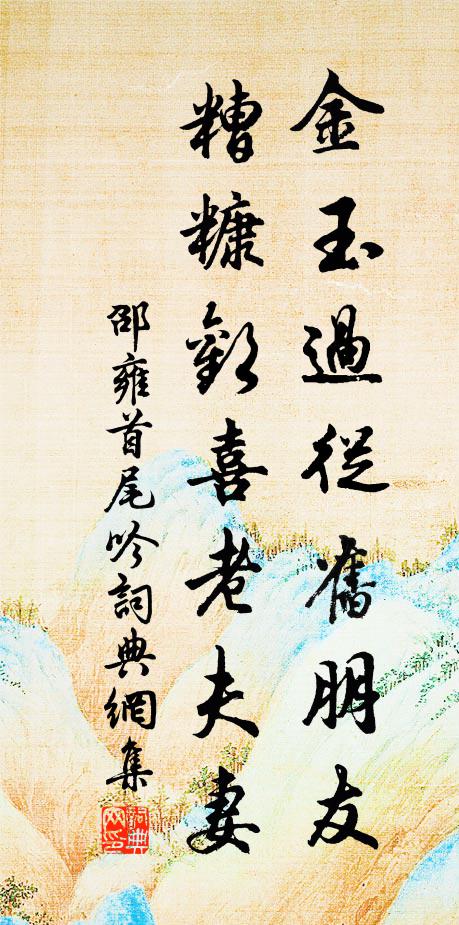 金玉過從舊朋友
糟糠歡喜老夫妻
邵雍首尾吟詞典網集
詞典网印